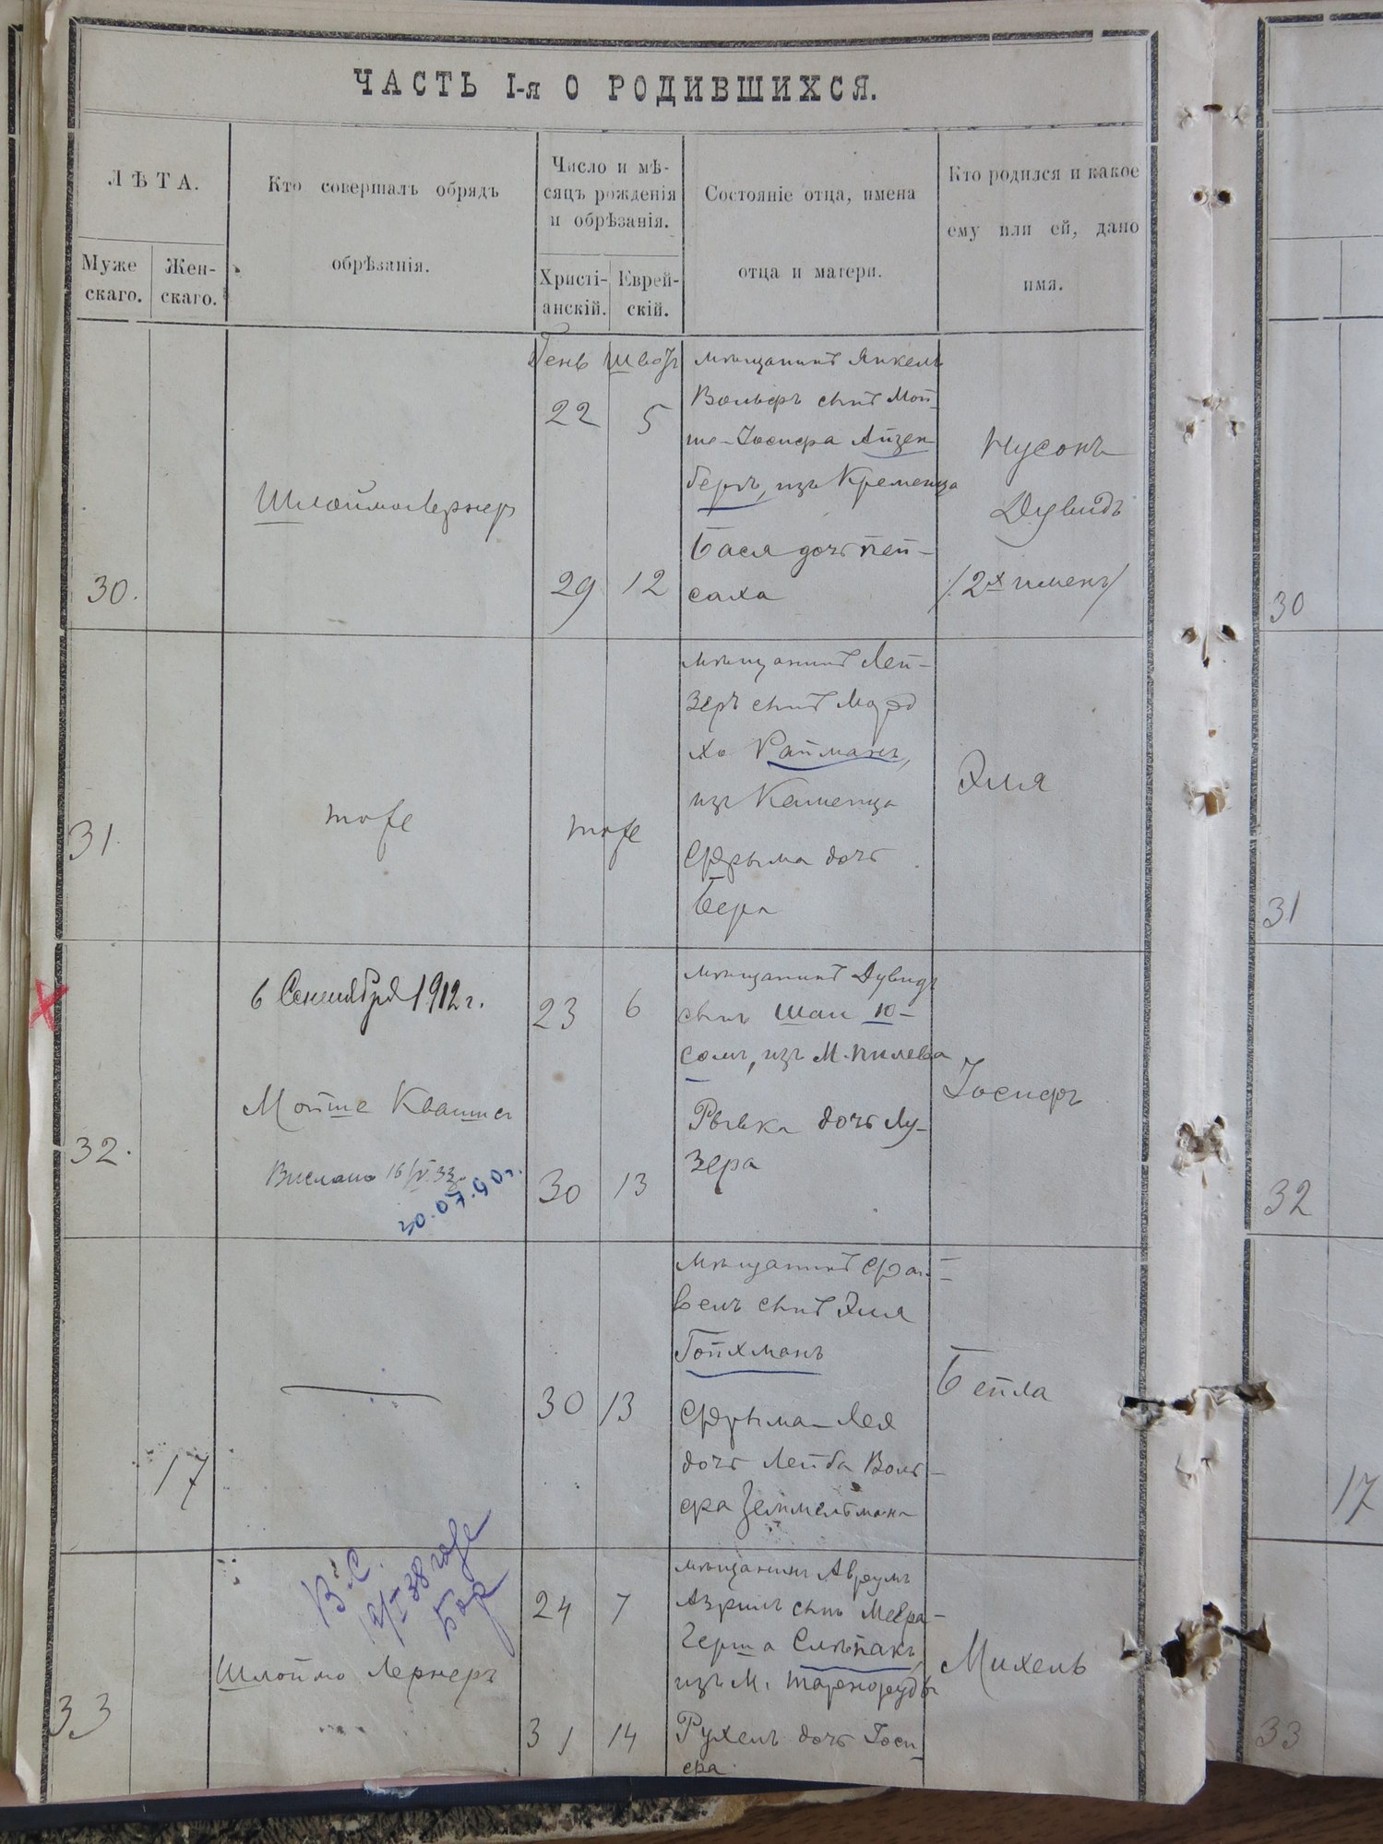 ЧАСТЬ I-я О РОДИВШИХСЯ.
ЛѢТА.
Муже
скаго.
Жен-
скаго.
Кто совершалъ обрядъ
обрѣзанія.
Число и мѣ-
сяцъ рожденія
и обрѣзанія.
Христі-
анскій.
Еврей-
скій.
Состояніе отца, имена
отца и матери.
Кто родился и какое
ему или ей, дано
имя.
30.
Шлоймо Лернеръ
22 5
29 12
мѣщанинъ Янкель
Вольфъ сынъ Мой-
ше-Іосифа Айзен
бергъ, изъ Кременца
Бася дочь Пей-
саха
Нусонъ
Дувидъ
/2х именъ/
30
31.
тоже
тоже
мѣщанинъ Лей-
зеръ сынъ Мордо
ха Райманъ,
изъ Каменца
Фрыма дочь
Бера
Эля
31
32.
6 Сентября 1912 г.
Мойше Квашис
Выслано
30.07.90г.
23 6
30 13
мѣщанинъ Дувидъ
сынъ Шаи Ю-
сомъ, изъ М-пилева
Рывка дочь Лу-
зера
Іосифъ
32
17
30 13
мѣщанинъ Фай-
вель сынъ Эля
Гойхманъ
Фрыма-Лея
дочь Лейба Воль-
фа Зельмельмана
Бейла
17
33
В.С.
38 годе
Шлоймо Лернеръ
24 7
31 14
мѣщанинъ Авреумъ
Азриль сынъ Меера-
Герша Слѣпакъ,
изъ М. Тарноруды
Рухель дочь Іоси-
фа.
Михель
33